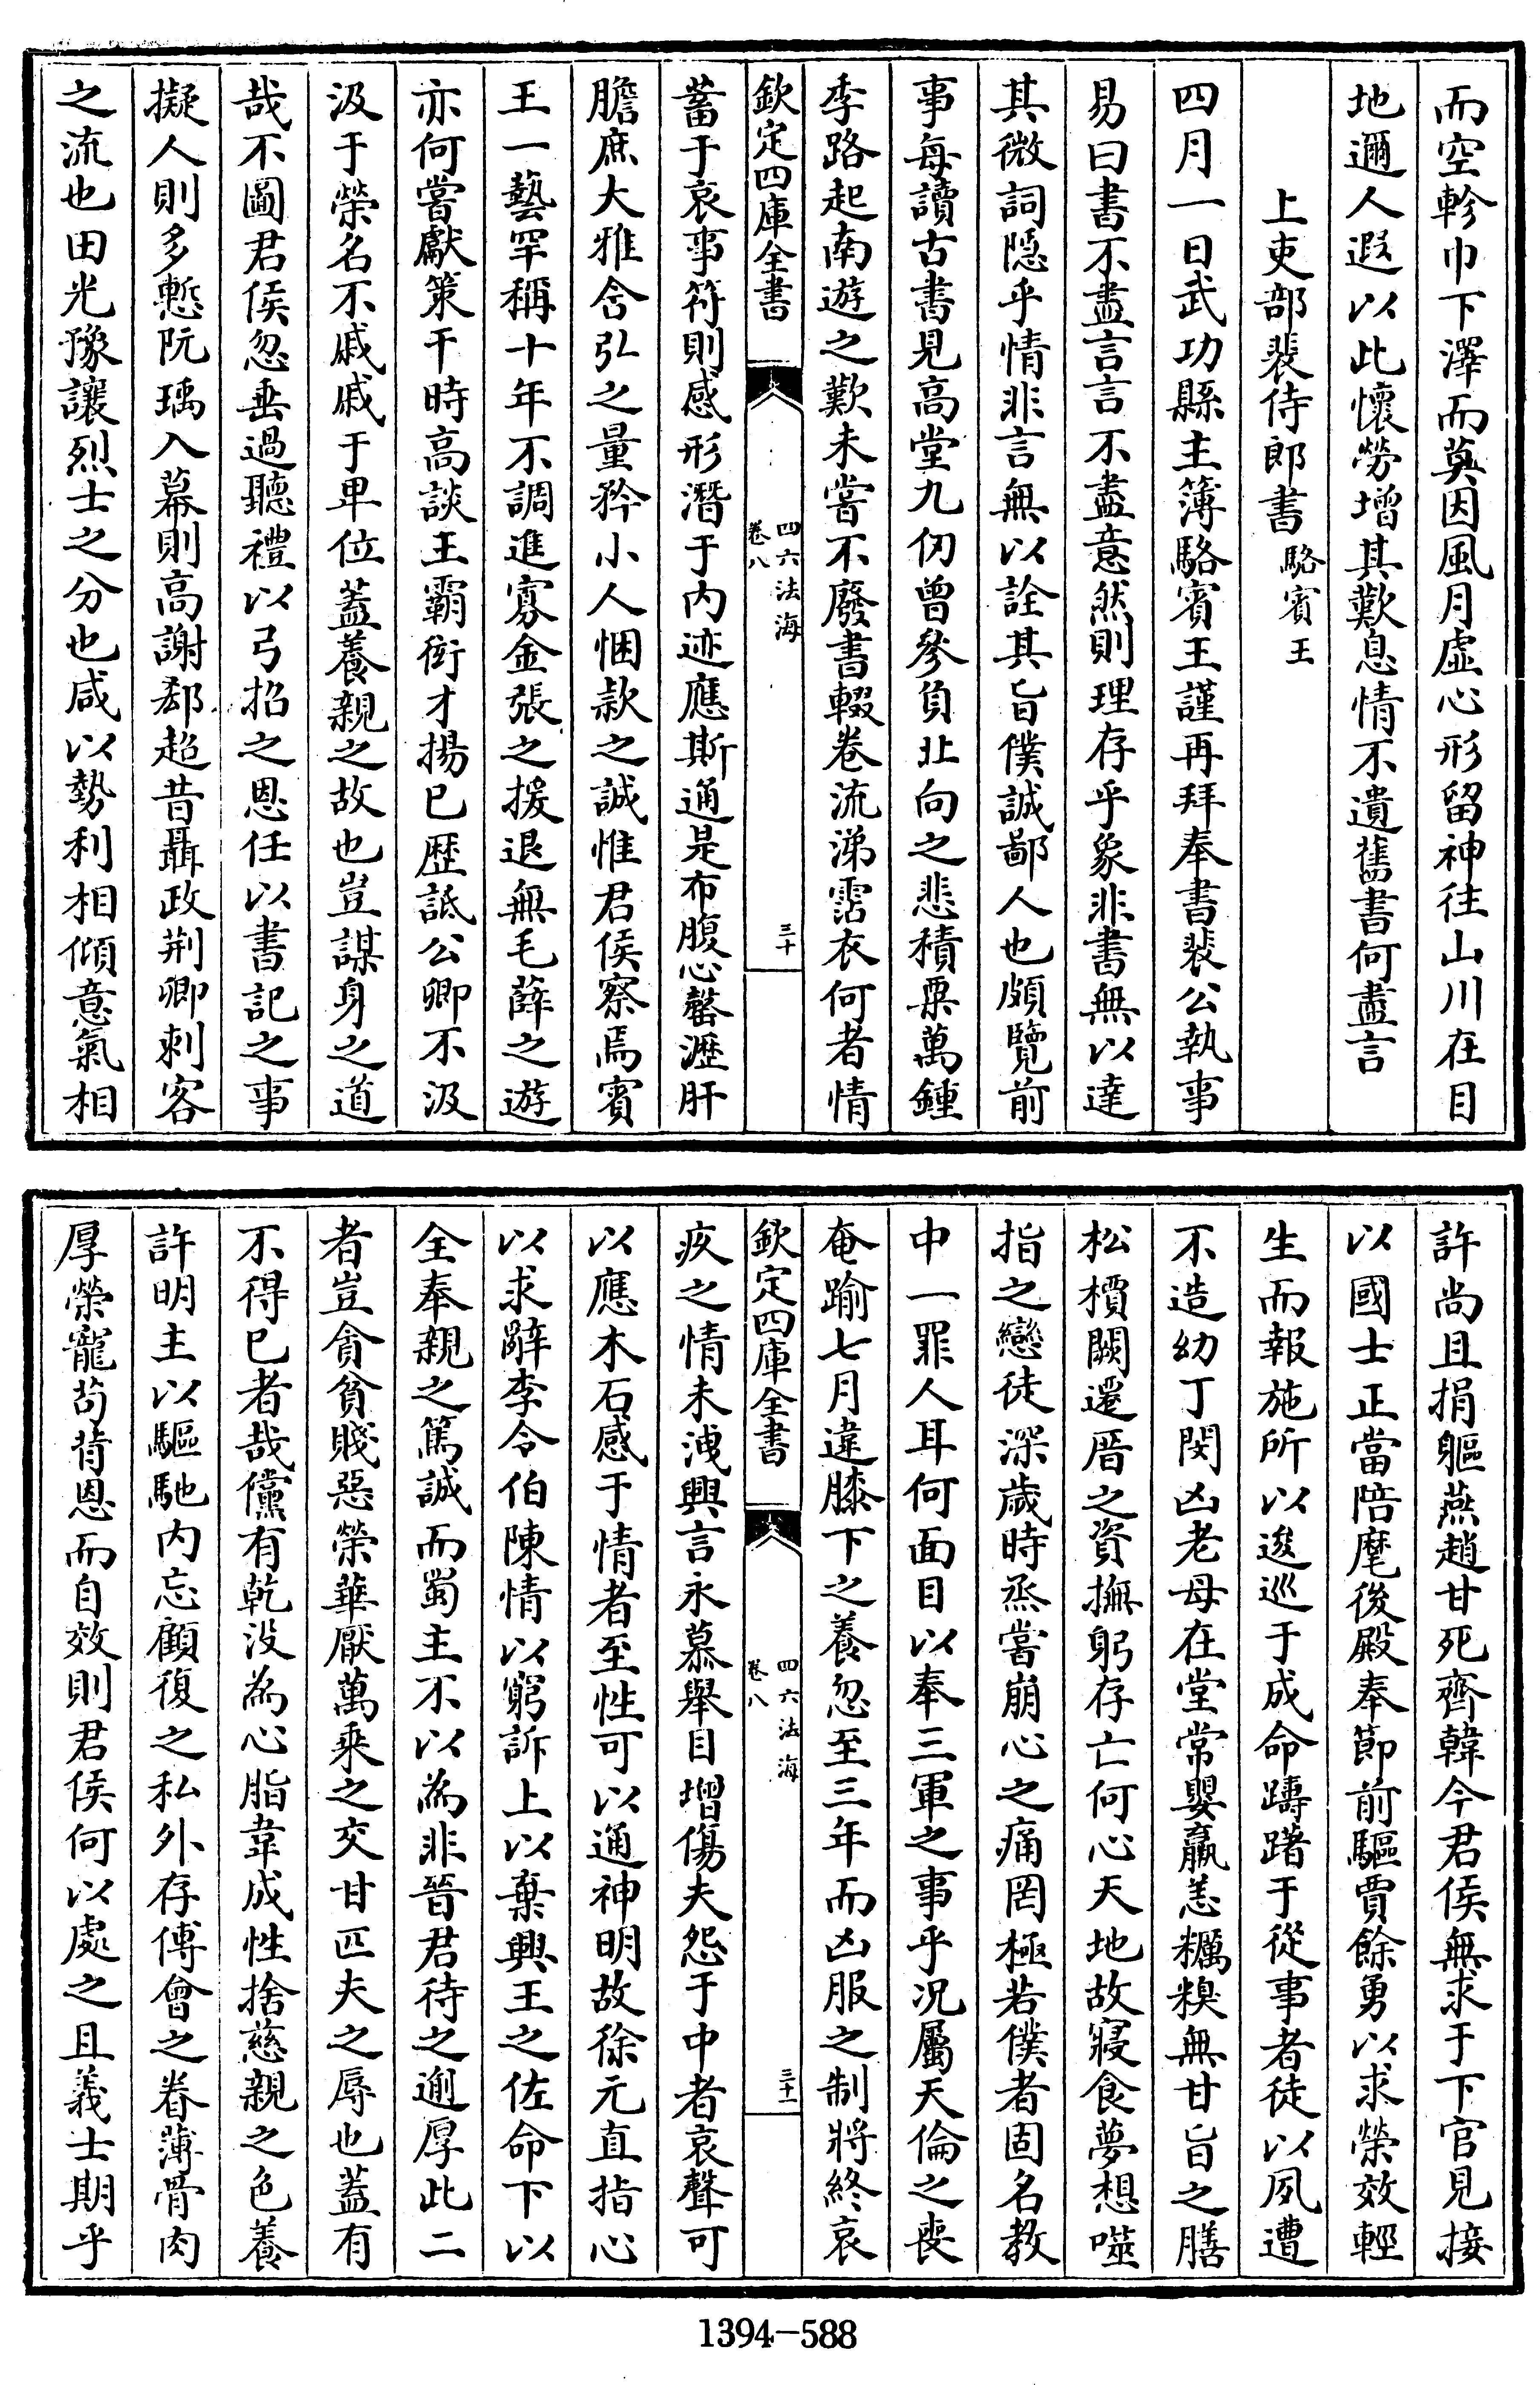 而空軫巾下澤而莫因風月虛心形留神往山川在目
地邇人遐以此懷勞增其歎息情不遺舊書何盡言
上吏部裴侍郎書駱賓王
四月一日武功縣主簿駱賓王謹再拜奉書裴公執事
易曰書不盡言言不盡意然則理存乎象非書無以達
其微詞隱乎情非言無以詮其旨僕誠鄙人也頗覽前
事每讀古書見高堂九仞曾參負北向之悲積粟萬鍾
季路起南遊之歎未嘗不廢書輟卷流涕霑衣何者情
欽定四庫全書
四六法海
卷八
三十
蓄于哀事符則感形潛于内迹應斯通是布腹心罄瀝肝
膽庶大雅含弘之量矜小人悃款之誠惟君侯察焉賓
王一藝罕稱十年不調進寡金張之援退無毛薛之遊
亦何嘗獻策干時高談王霸衒才揚已歷詆公卿不汲
汲于榮名不戚戚于卑位蓋養親之故也豈謀身之道
哉不圖君侯忽垂過聽禮以弓招之恩任以書記之事
擬人則多慙阮瑀入幕則高謝郄超昔聶政荆卿刺客
之流也田光豫讓烈士之分也咸以勢利相傾意氣相
許尚且捐軀燕趙甘死齊韓今君侯無求于下官見接
以國士正當陪麾後殿奉節前驅賈餘勇以求榮效輕
生而報施所以逡巡于成命躊躇于從事者徒以夙遭
不造幼丁閔凶老母在堂常嬰羸恙糲糗無甘旨之膳
松檟闕遷厝之資撫躬存亡何心天地故寢食夢想噬
指之戀徒深歲時烝嘗崩心之痛罔極若僕者固名教
中一罪人耳何面目以奉三軍之事乎况屬天倫之喪
奄踰七月違膝下之養忽至三年而凶服之制將終哀
欽定四庫全書
四六法海
卷八
三十一
疚之情未洩興言永慕舉目增傷夫怨于中者哀聲可
以應木石感于情者至性可以通神明故徐元直指心
以求辭李令伯陳情以窮訴上以棄興王之佐命下以
全奉親之篤誠而蜀主不以為非晉君待之逾厚此二
者豈貪貧賤惡榮華厭萬乘之交甘匹夫之辱也蓋有
不得已者哉儻有乾没為心脂韋成性捨慈親之色養
許明主以驅馳内忘顧復之私外存傅會之眷薄骨肉
厚榮寵苟背恩而自效則君侯何以處之且義士期乎
1394-588